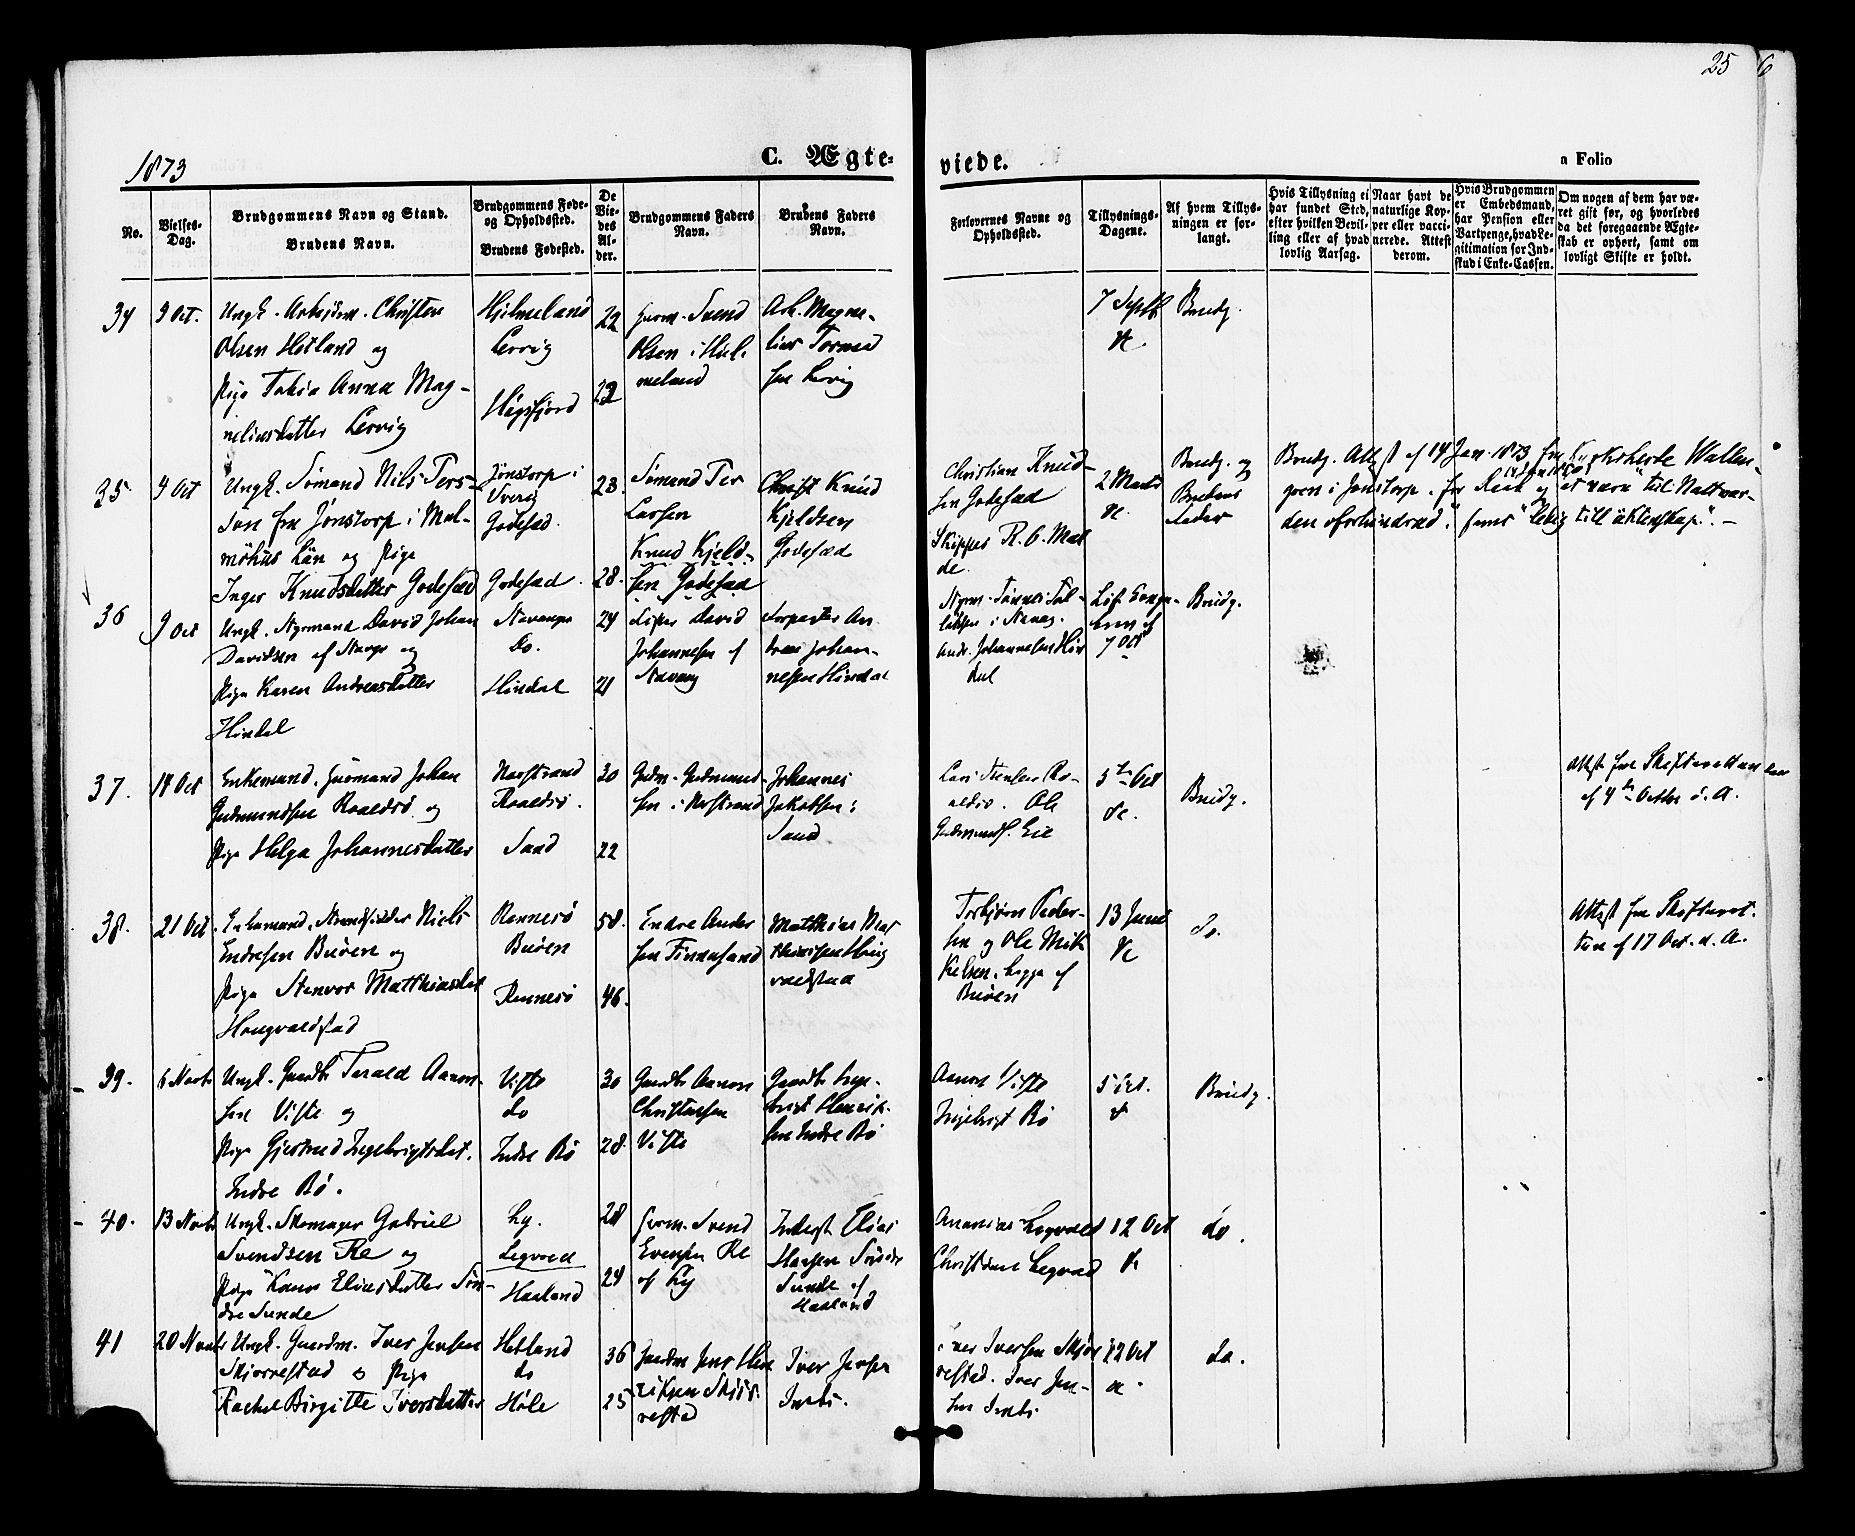 25 6
1873
C. Ægte-
viede.
a Folio
No.
Vielses-
Dag.
Brudgommens Navn og Stand.
Brudens Navn.
Brudgommens Føde-
og Opholdssted.
Brudens Fødested.
De
Vie-
des
Al-
der.
Brudgommens Faders
Navn.
Brudens Faders
Navn.
Forlovernes Navne og
Opholdssted.
Tillysnings-
Dagene.
Af hvem Tillys-
ningen er for-
langt.
Hvis Tillysning ei
har fundet Sted,
efter hvilken Bevil-
ling eller af hvad
lovlig Aarsag.
Naar havt de
naturlige Kop-
per eller vacci-
nerede. Attest
derom.
Hvis Brudgommen
er Embedsmand,
har Pension eller
Vartpenge, hvad Le-
gitimation for Ind-
skud i Enke-Cassen.
Om nogen af dem har væ-
ret gift før, og hvorledes
da det foregaaende Ægte-
skab er ophørt, samt om
lovligt Skifte er holdt.
34
9 Oct.
Ungk. Arbejdsm. Christen
Olsen Hetland og
Pige Tabia Anna Mag-
neliusdatter Lervig
Hjelmeland
Lervig
Høgsfjord
22
22
Svend
Olsen i Hjel-
meland
Arb. Magne-
lius Tormod
sen Lervig
7 Septb
&c.
Brudg.
35
9 Oct
Ungk. Sømand Nils Pers-
son fra Jönstorp i Mal-
möhus Län og Pige
Inger Knudsdatter Godesæd
Jönstorp i
Sverig
Godesæd.
Godesæd.
23.
28.
Sømand Per
Larsen
Knud Kjeld-
sen Godesæd
Knud
Kjeldsen
Godesæd
Christian Knud-
sen Godesæd
Skipper R. G. Mal
de.
2 Marts
&c.
Brudg. og
Brudens
Fader
Brudg. Attest af 14 Jan. 1873 fra Kyrkoherde Wallen-
gren i Jönstorp. for
den oforhindrad", samt "ledig till äktenskap". -
36
9 Oct
Ungk. Styrmand David Johan
Davidsen af Stavgr og
Pige Karen Andreasdatter
Hindal
Stavanger
Do.
Hindal
24
21
David
Johannesen af
Stavang
An
dreas Johan-
nesen Hindal
Styrm. Tønnes Tol-
laksen i Stavag.
Andr. Johannesen Hin
dal
af
7 Oct
Brudg.
37.
18 Oct
Enkemand. Husmand Johan
Gudmundsen Roaldsø og
Pige Helga Johannesdatter
Nærstrand
Roaldsø.
Sand
30
22
Gudm. Gudmund-
sen i Nærstrand
Johannes
Jakobsen i
Sand
Lars Svendsen Ro-
aldsø. Ole
Gudmunds. Eie
5te Oct
&c.
Brudg.
Attest fra Skifteretten
af 4de Octbr d. A.
38.
21 Oct
Enkemand, Strandsidder Niels
Endresen Buøen og
Pige Stenvor Matthiasdat
Haugvaldstad
Rennesø
Buøen
Rennesø
58.
46.
Endre Ander
sen Finnesand
Matthias Mat
thiassen Haug
valdstad
Torbjørn Peder-
sen og Ole Mik
kelsen, begge af
Buøen
13 Juni
&c
Do.
Attest fra Skifteret-
ten af 17 Oct. d. A.
39.
6 Novbr
Ungk. Gaardbr Tarald Aanon-
sen Viste og
Pige Gjertrud Ingebrigtsdat.
Indre Bø.
Viste
do
Indre Bø
30
28.
Gaardbr Aanon
Christensen
Viste
Gaardbr Inge-
brigt Henrik-
sen Indre Bø
Aanon Viste
Ingebrigt Bø
5 Oct.
&
Brudg.
40.
13 Novbr
Ungk. Skomager Gabriel
Svendsen Re og
Pige Karen Eliasdatter Søn-
dre Sunde
Ly.
Legvold
Haaland
28
24
Svend
Evensen Re
af Ly
Inderst Elias
Hansen Søndre
Sunde af
Haaland
Ananias Legvold
Christian Legvold
12 Oct
&c
do.
41
20 Novbr
Ungk. Gaardm. Iver Jensen
Skjørrestad & Pige
Rachel Birgitte Iversdatter
Hetland
do
Høle
36
25
Gaardm Jens Hen
riksen Skjør-
restad
Iver Jensen
Iver Iversen Skjør
restad. Iver Jen-
sen
12 Oct
&c.
do.